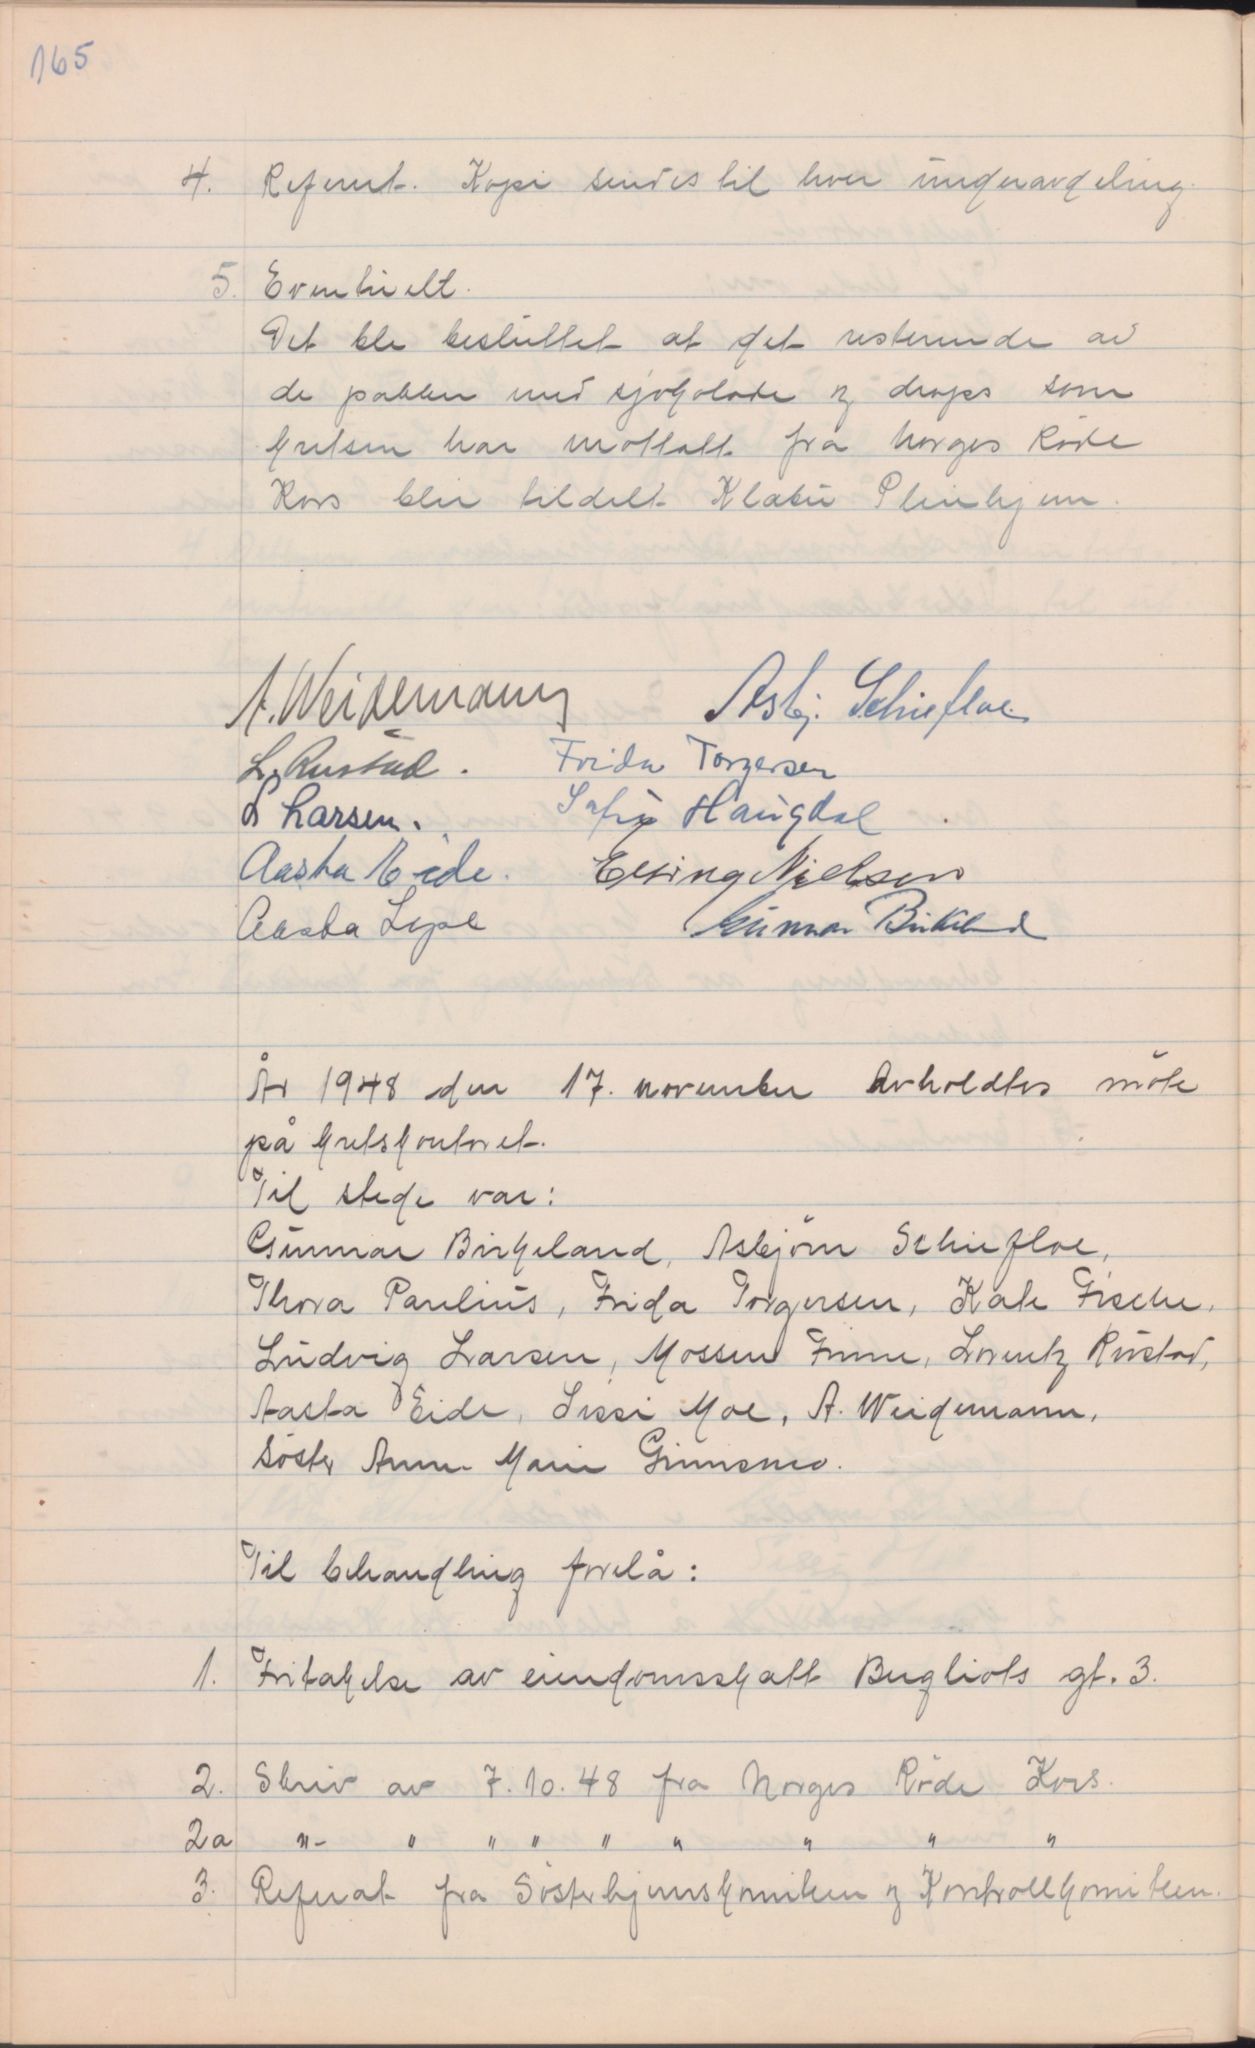 165
4. Referat. Kopi sendes til hver underavdeling.
5. Eventuelt.
Det ble besluttet at det resterende av
de pakker med sjokolade og drops som
kretsen har mottatt fra Norges Røde
Kors blir tildelt Klæbu Pleiehjem.
A. Weidemann Asbj. Schiefloe.
L. Rustad. Frida Torgersen
L Larsen. Haugdal
Aasta Eide. Elsing Nielsen
Aasta Gunnar Birkeland
År 1948 den 17. november avholdtes möte
på kretskontoret.
Til stede var:
Gunnar Birkeland, Asbjörn Schiefloe,
Thora Paulius, Frida Torgersen, Kate Fische,
Ludvig Larsen, Mossen Finne, Lorentz Rustad,
Aasta Eide, Sissi Moe, A. Weidemann,
Söster Anne Marie
Til behandling forelå:
1. Fritakelse av eiendomsskatt gt. 3.
2. Skriv av 7.10.48 fra Norges Röde Kors.
2a "- " " " " " " " "
3. Referat fra Sösterhjemskomiteen og Kontrollkomiteen.